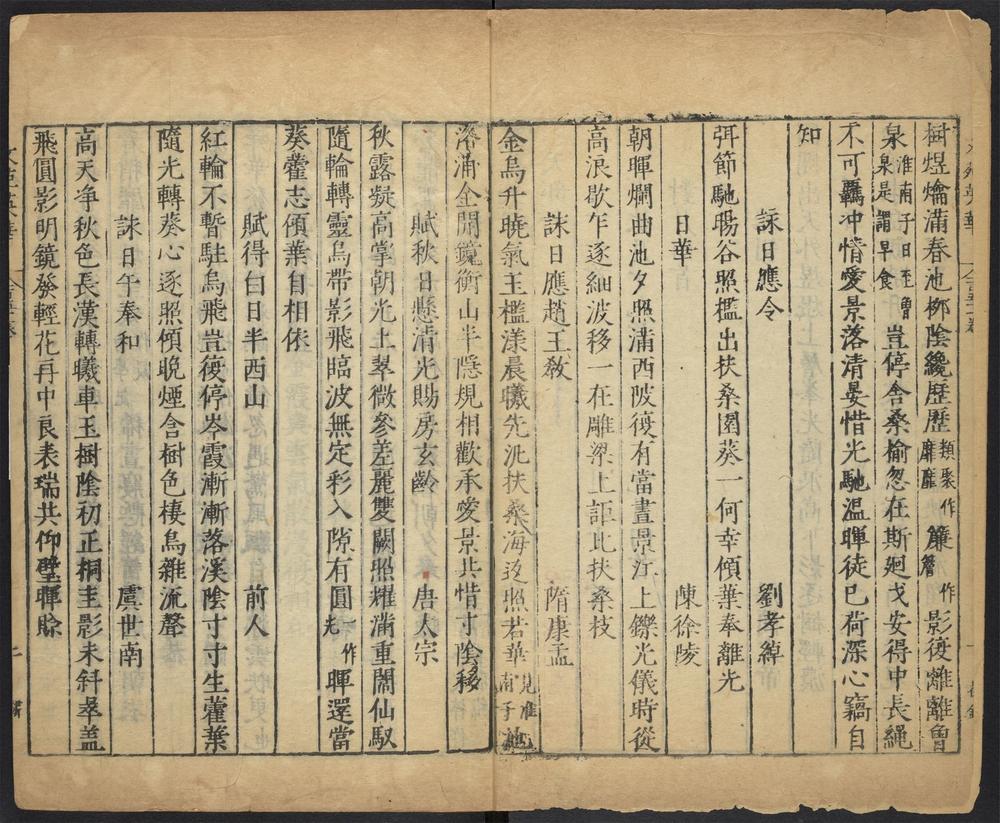 樹煜爚滿春池栁陰纔歷歷類聚作離離簾作簷影復離離魯
泉淮南子曰至曾泉是謂早食豈停舍桑榆忽在斯廻戈安得中長繩
不可羈冲情愛景落清晏惜光馳温暉徒已荷深心竊自
知
詠日應令 劉孝綽
弭節馳暘谷照檻出扶桑園葵一何幸傾葉奉離光
日華 陳徐陵
朝暉爛曲池夕照滿西陂復有當晝景江上鑠光儀時從
高浪歇乍逐細波移一在雕梁上詎比扶桑枝
詠日應趙王敎 隋康孟
金烏升曉氣玉檻漾晨曦先泛扶桑海返照若華見淮南子池
洛浦全開鏡衡山半隠規相歡承愛景共惜寸陰移
賦秋日懸清光賜房玄齡 唐太宗
秋露凝高掌朝光上翠微參差麗雙闕照耀滿重闈仙馭
隨輪轉靈烏帶影飛臨波無定彩入隙有圓一作光暉還當
葵藿志傾葉自相依
賦得白日半西山 前人
紅輪不暫駐烏飛豈復停岑霞漸漸落溪陰寸寸生藿葉
隨光轉葵心逐照傾晚煙含樹色棲烏雜流聲
詠日午奉和 虞世南
高天净秋色長漢轉曦車玉樹陰初正桐圭影未斜翠盖
飛圓影明鏡發輕花再中良表瑞共仰璧暉賖